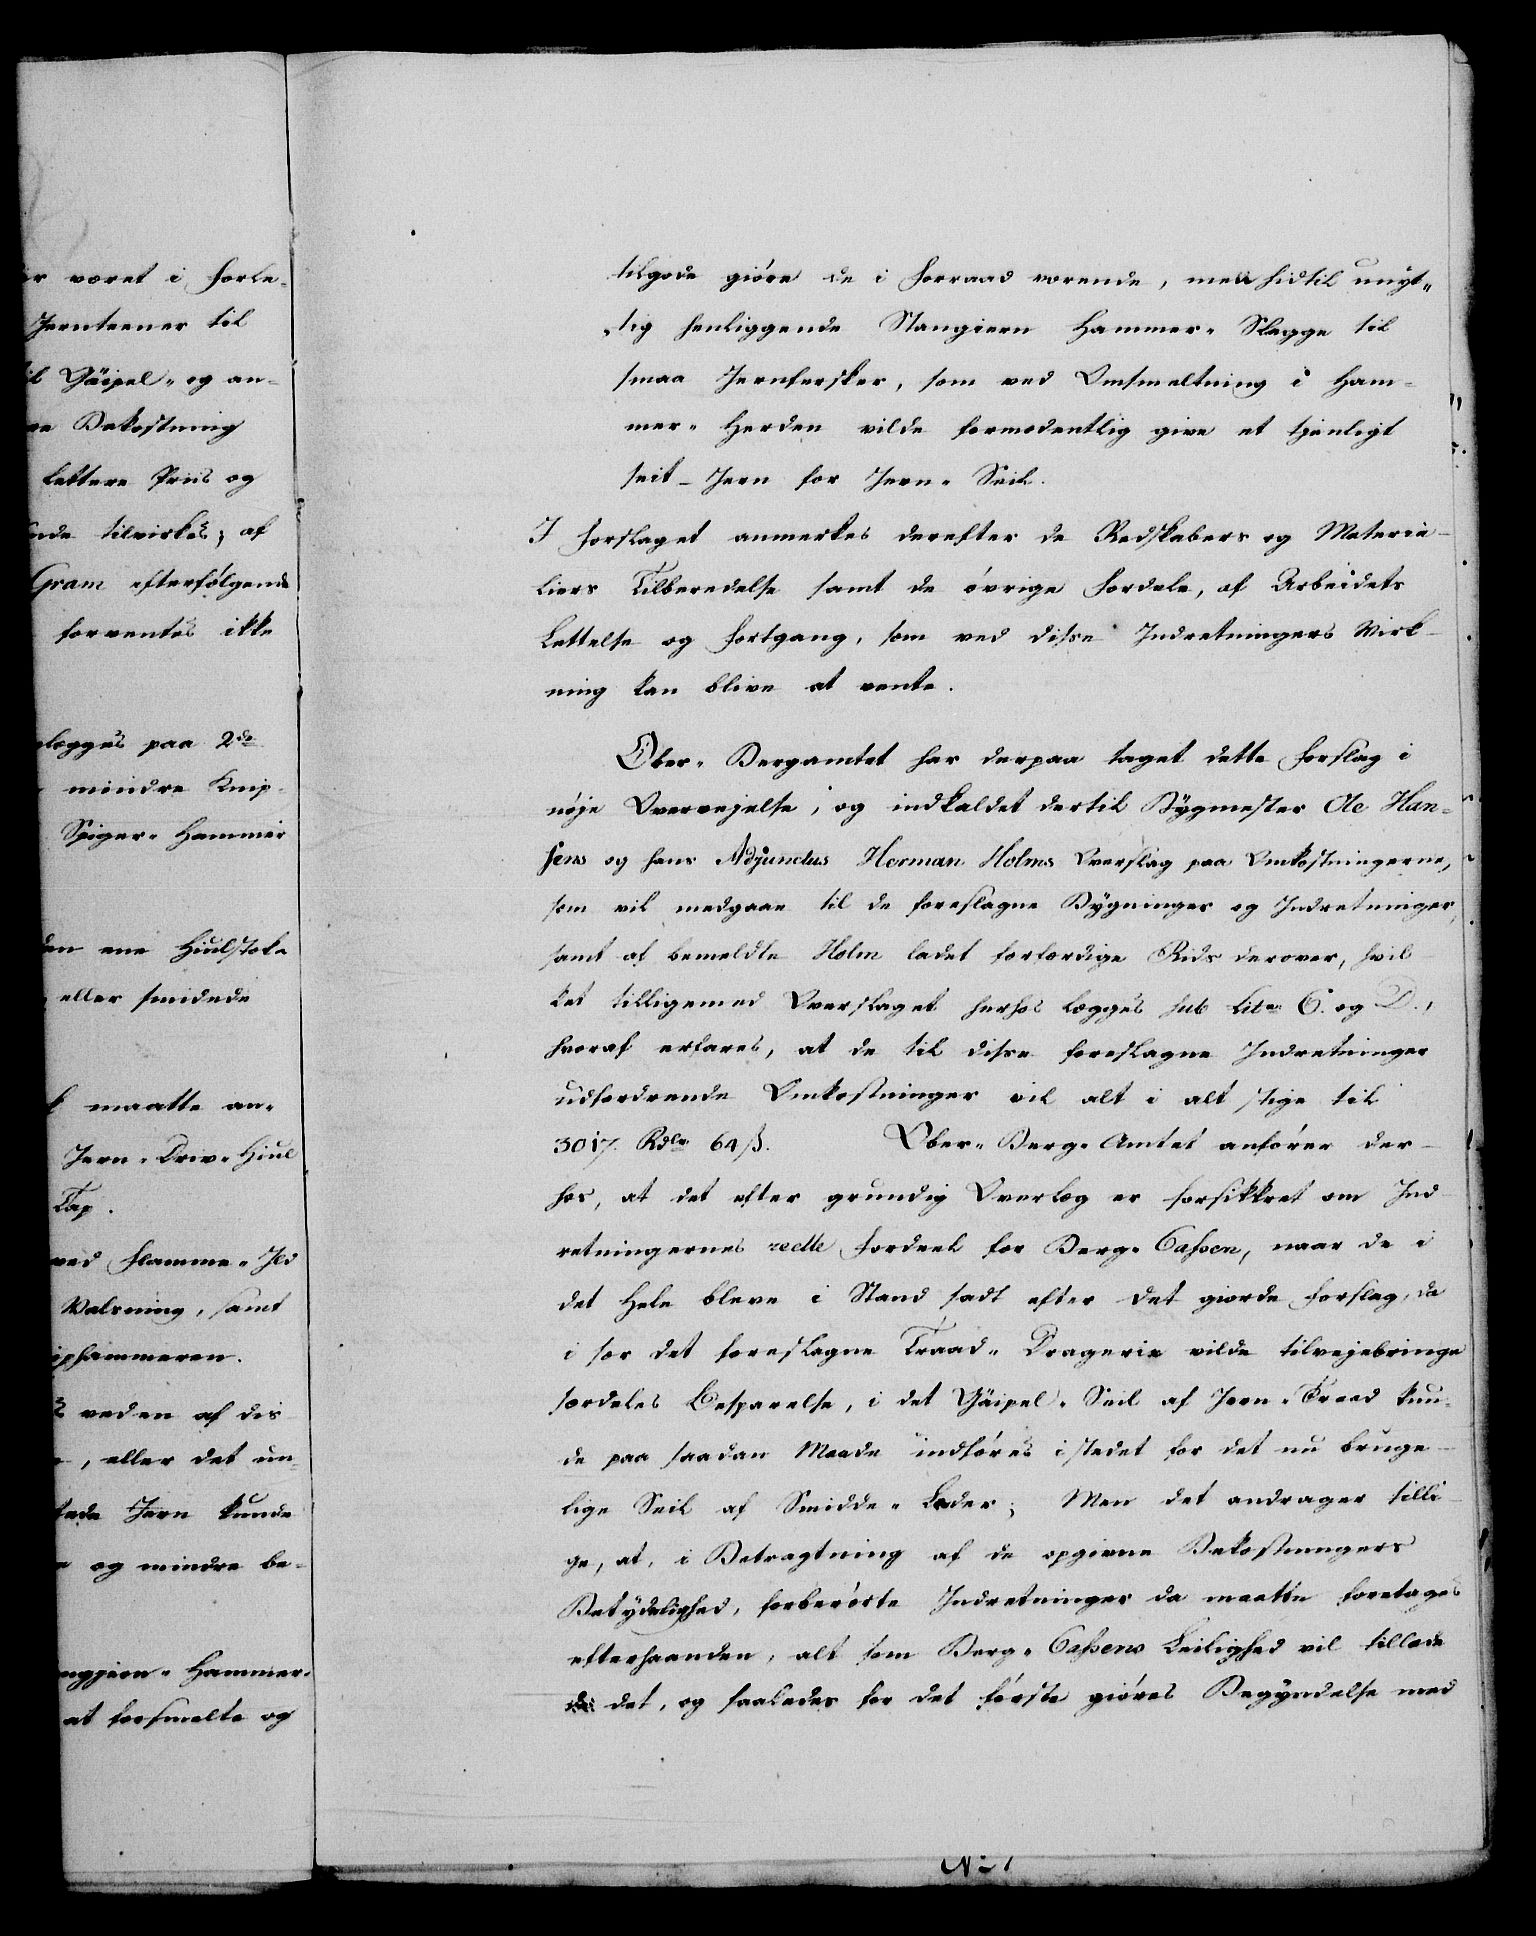 er været i Forle-
Jernteener til
til Gäipel- og an-
re Bekostning
lettere Priis og
nde tilvirkes; af
Gram efterfølgende
forventes ikke
lægges paa 2de
mindre Knip-
Spiger-Hammer
den ene Hiulstok
eller smidede
maatte an-
Jern-Driv-Hiul
Tap.
ved Flamme-Ild
Valsning, samt
iphammeren.
veden af dis
, eller det un-
tede Jern kunde
og mindre be-
ngjern-Hammer-
at forsmelte og
tilgode giøre de i Forraad værende, men hidtil unyt-
tig henliggende Stangiern Hammer-Slagge til
smaa Jernfersker, som ved Omsmeltning i Ham-
mer-Herden vilde formodentlig give et tjenligt
seit-Jern for Jern-Seil.
I Forslaget anmerkes derefter de Redskabers og Materia-
liers Tilberedelse samt de øvrige Fordele, af Arbeidets
Lettelse og Fortgang, som ved disse Indretningers Virk-
ning kan blive at vente.
Ober-Bergamtet har derpaa taget dette Forslag i
nøje Overvejelse, og indkaldet dertil Bygmester Ole Han-
sens og hans Adjunctus Herman Holms Overslag paa Omkostningerne,
som vil medgaae til de foreslagne Bygninger og Indretninger,
samt af bemeldte Holm ladet forfærdige Rids derover, hvil-
ket tilligemed Overslaget herhos lægges sub Litr C. og D.,
hvoraf erfares, at de til disse foreslagne Indretninger
udfordrende Omkostninger vil alt i alt stige til
3017 Rdlr 64 ß. Ober-Berg-Amtet anfører der-
hos, at det efter grundig Overlæg er forsikkret om Ind-
retningernes reelle Fordeel for Berg-Cassen, naar de i
det Hele bleve i Stand sadt efter det giorde Forslag, da
i sær det foreslagne Traad-Dragerie vilde tilvejebringe
særdeles Besparelse, i det Gäipel-Seil af Jern-Traad kun-
de paa saadan Maade indføres i stedet for det nu bruge-
lige Seil af Smidde-Læder; Men det andrager tilli-
ge, at, i Betragtning af de opgivne Bekostningers
Betydelighed, forberørte Indretninger da maatte foretages
efterhaanden, alt som Berg-Cassens Leilighed vil tillade
det, og saaledes for det første giøres Begyndelse med
No 1